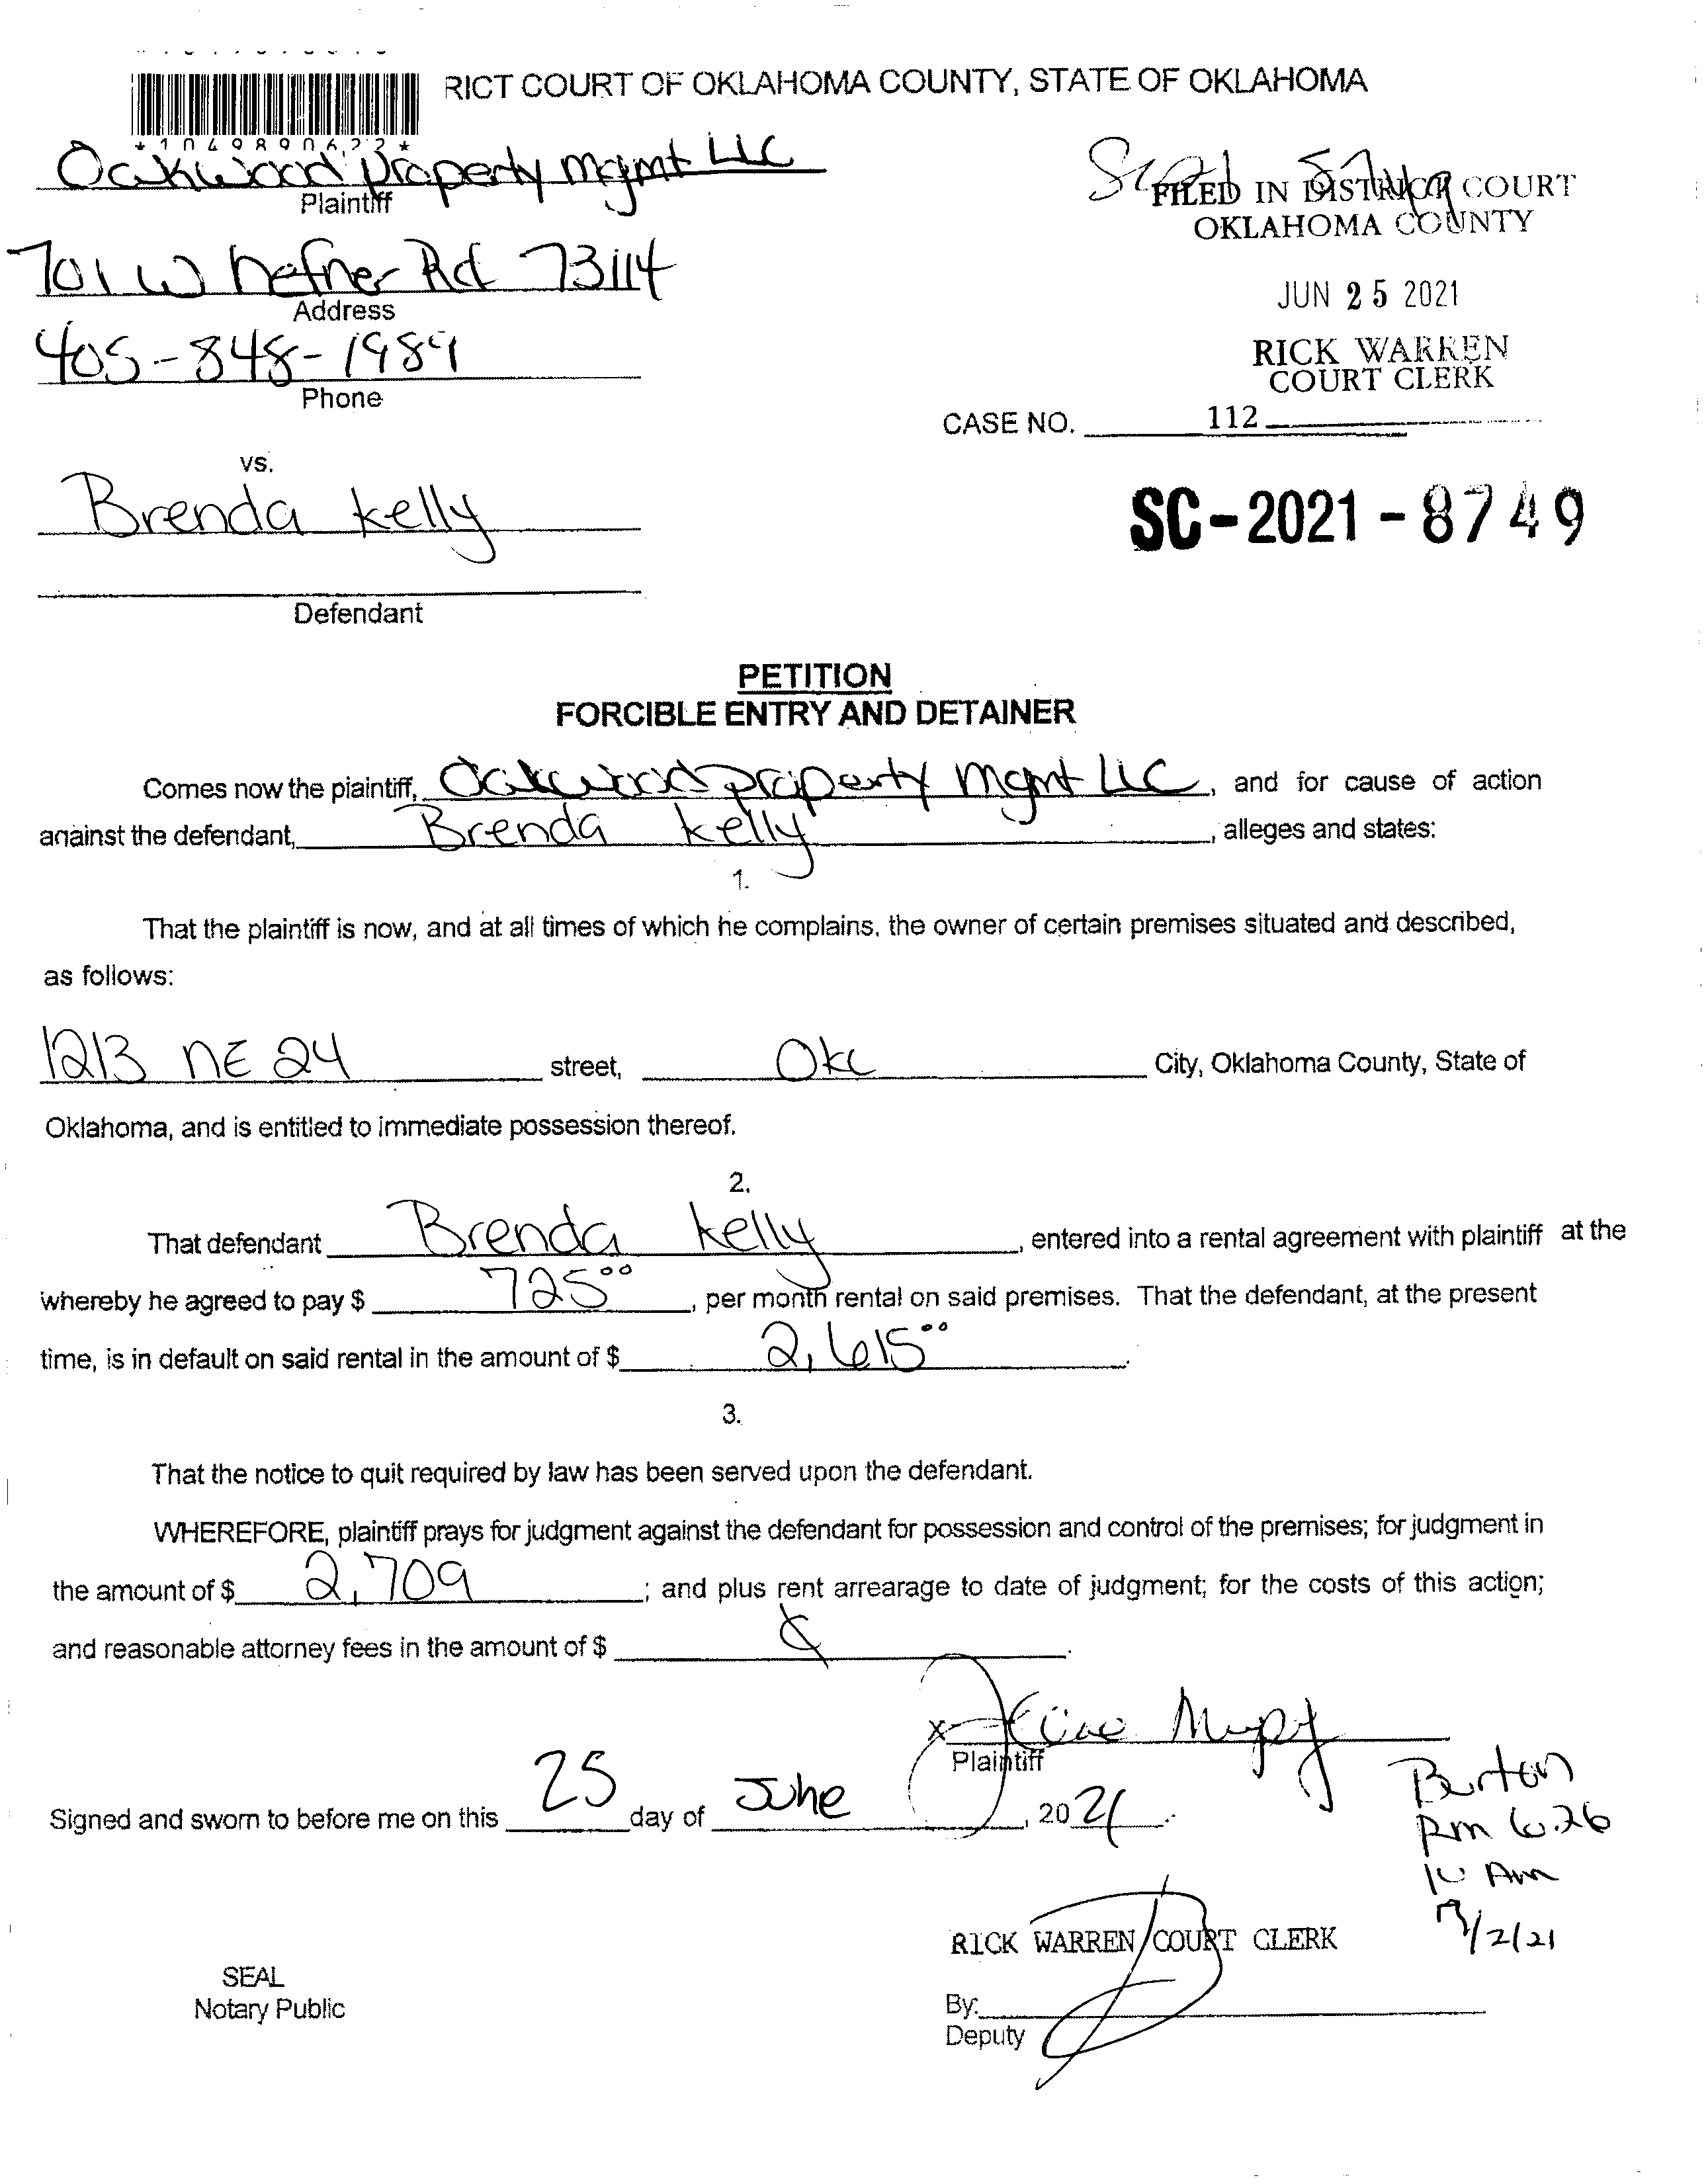 RICT COURT OF OKLAHOMA COUNTY, STATE OF OKLAHOMA
*1049890622*
Oakwood Property Mgmt LLC
Plaintiff
FILED IN DISTRICT COURT
OKLAHOMA COUNTY
701 W hefner Rd 73114
Address
JUN 25 2021
405-848-1989
Phone
RICK WARREN
COURT CLERK
CASE NO. 112
vs.
Brenda Kelly
SC-2021-8749
Defendant
PETITION
FORCIBLE ENTRY AND DETAINER
Comes now the plaintiff, Oakwood property Mgmt LLC, and for cause of action
against the defendant, Brenda Kelly, alleges and states:
1.
That the plaintiff is now, and at all times of which he complains, the owner of certain premises situated and described,
as follows:
1213 NE 24 street, Okc City, Oklahoma County, State of
Oklahoma, and is entitled to immediate possession thereof.
2.
That defendant Brenda Kelly, entered into a rental agreement with plaintiff at the
whereby he agreed to pay $ 725⁰⁰, per month rental on said premises. That the defendant, at the present
time, is in default on said rental in the amount of $ 2,615⁰⁰.
3.
That the notice to quit required by law has been served upon the defendant.
WHEREFORE, plaintiff prays for judgment against the defendant for possession and control of the premises; for judgment in
the amount of $ 2,709; and plus rent arrearage to date of judgment; for the costs of this action;
and reasonable attorney fees in the amount of $
X
Plaintiff
Signed and sworn to before me on this 25 day of June, 2021.
Burton
Rm 626
10 Am
7/2/21
RICK WARREN COURT CLERK
SEAL
Notary Public
By:
Deputy